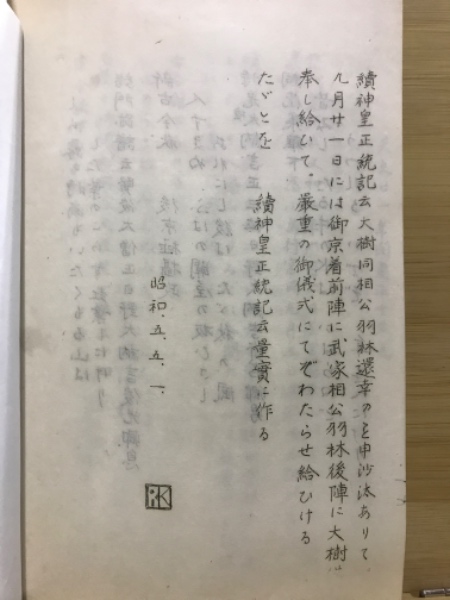 續神皇正統記云大樹同相公羽林還幸のを申沙汰ありて
九月廿一日には御京着前陣に武家相公羽林後陣に大樹
奉し給いて。嚴重の御儀式にてぞわたらせ給ひける
たゞとを 續神皇正統記云量實に作る
昭和、五、五、一、